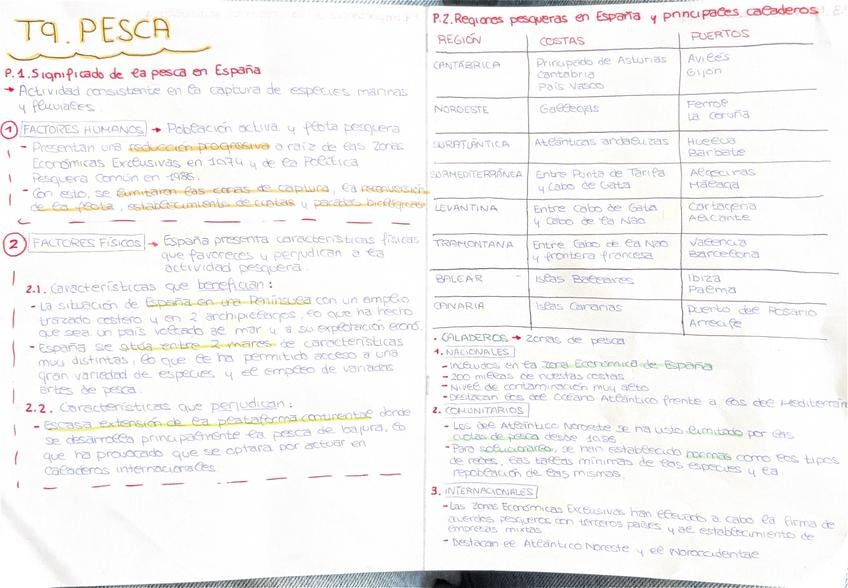 T9. PESCA
P.1. Significado de la pesca en España
→ Actividad consistente en la captura de especies marinas
y fluviales.
1 FACTORES HUMANOS → Población activa y flota pesquera
- Presentan una reducción progresiva a raíz de las Zonas
Económicas Exclusivas en 1974 y de la Política
Pesquera Común en 1986.
- Con esto, se limitaron las zonas de captura, la reconversión
de la flota, establecimiento de cuotas y parados biológicos
2 FACTORES FÍSICOS → España presenta características físicas
que favorecen y perjudican a la
actividad pesquera.
2.1. Características que benefician:
- La situación de España en una Península con un amplio
trazado costero y en 2 archipiélagos, lo que ha hecho
que sea un país volcado al mar y a su explotación econó.
- España se sitúa entre 2 mares de características
muy distintas, lo que le ha permitido acceso a una
gran variedad de especies y el empleo de variadas
artes de pesca.
2.2. Características que perjudican:
- Escasa extensión de la plataforma continental donde
se desarrolla principalmente la pesca de bajura, lo
que ha provocado que se optara por actuar en
caladeros internacionales
P.2. Regiones pesqueras en España y principales caladeros
REGIÓN COSTAS PUERTOS
CANTÁBRICA Principado de Asturias Avilés
Cantabria Gijón
País Vasco
NOROESTE Gallegas Ferrol
La Coruña
SURATLÁNTICA Atlánticas andaluzas Huelva
Barbate
SURMEDITERRÁNEA Entre Punta de Tarifa Algeciras
y Cabo de Gata Málaga
LEVANTINA Entre Cabo de Gata Cartagena
y Cabo de la Nao Alicante
TRAMONTANA Entre Cabo de la Nao Valencia
y frontera francesa Barcelona
BALEAR Islas Baleares Ibiza
Palma
CANARIA Islas Canarias Puerto del Rosario
Arrecife
. CALADEROS → Zonas de pesca
1. NACIONALES
- Incluidos en la Zona Económica de España
- 200 millas de nuestras costas
- Nivel de contaminación muy alto
- Destacan los del Océano Atlántico frente a los del Mediterrán
2. COMUNITARIOS
- Los del Atlántico Noroeste se ha visto limitado por las
cuotas de pesca desde 1986
- Para solucionarlo, se han establecido normas como los tipos
de redes, las tallas mínimas de las especies y la
repoblación de las mismas.
3. INTERNACIONALES
- Las Zonas Económicas Exclusivas han llevado a cabo la firma de
acuerdos pesqueros con terceros países y al establecimiento de
empresas mixtas
- Destacan el Atlántico Noreste y el Noroccidental